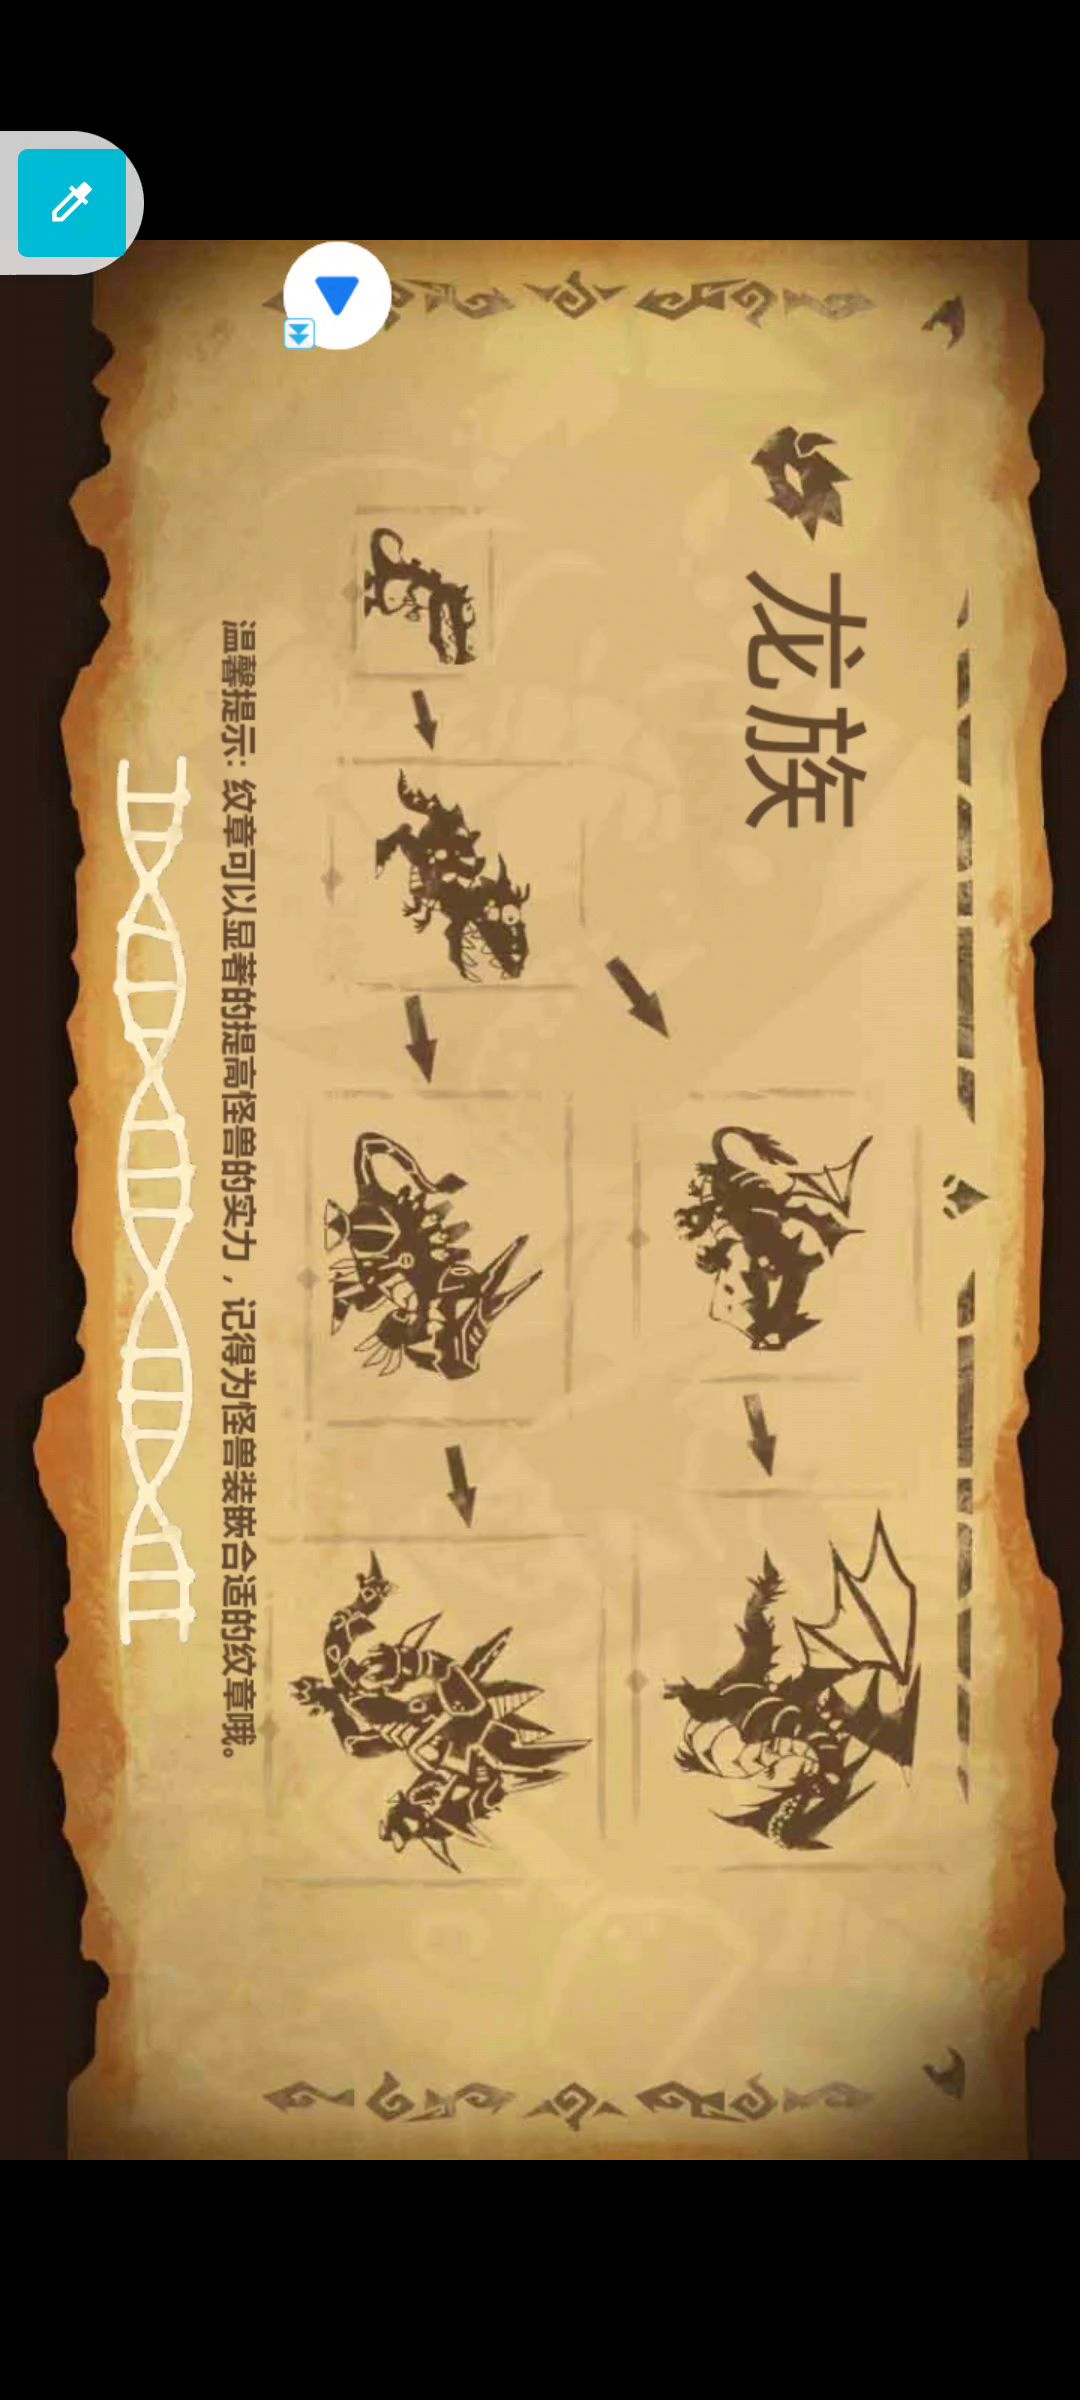 龙族
温馨提示: 纹章可以显著的提高怪兽的实力，记得为怪兽装嵌合适的纹章哦。